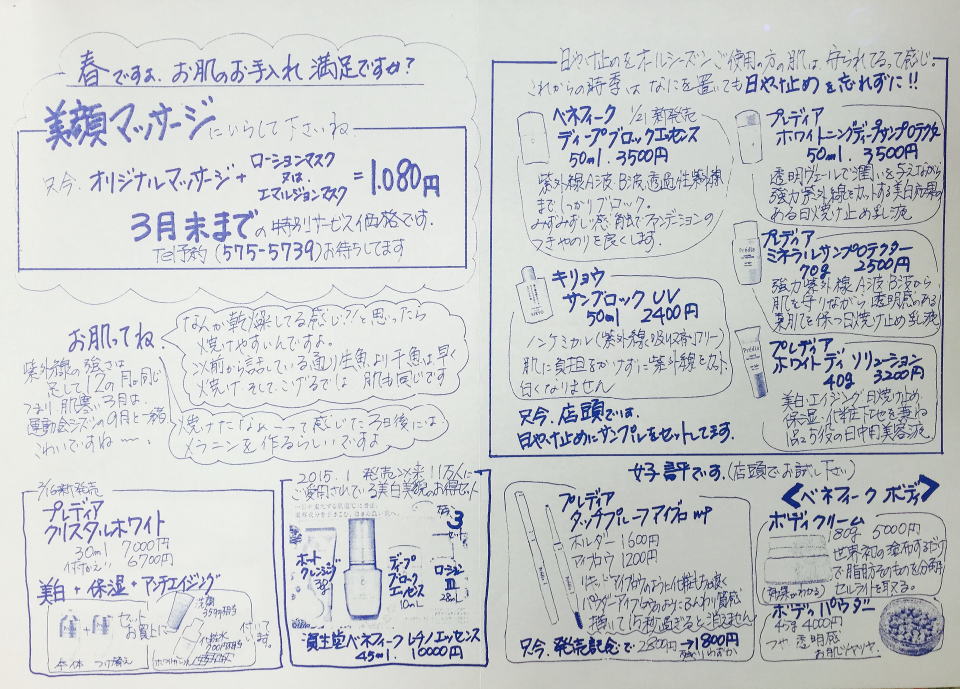 春ですよ、お肌のお手入れ満足ですか?
美顔マッサージにいらして下さいね
只今、オリジナルマッサージ+
ローションマスク
又は、
エマルジョンマスク
=1.080円
3月末までの特別サービス価格です。
ご予約(575-5739)お待ちしてます
お肌ってね
紫外線の強さは
足して12の月。同じ
つまり肌寒い3月は、
運動会シーズンの9月と一緒
こわいですね〜、
なんか乾燥してる感じ?!と思ったら
焼けやすいんですよ。
以前から話している通り生魚より干魚は早く
焼けそしてこげるでしょ 肌も同じです
焼けたなぁーって感じた3日後には、
メラニンを作るらしいですよ
日やけ止めをオールシーズンご使用の方の肌は、守られてるって感じ。
これからの時季はなにを置いても日やけ止めを忘れずに!!
ベネフィーク 1/21新発売
ディープブロックエッセンス
50ml. 3500円
紫外線A波B波透過性紫外線
までしっかりブロック。
みずみずしい感触でファンデーションの
つきやのりを良くします。
キリョウ
サンブロックUV
50ml 2400円
ノンケミカル(紫外線吸収剤フリー)
肌に負担をかけずに紫外線をカット
白くなりません
只今、店頭でいます。
日やけ止めにサンプルをセットしてます。
プレディア
ホワイトニングディープサンプロテクター
50ml. 3500円
透明ヴェールで潤いを与えながら
強力紫外線をカットする美白効果の
ある日焼け止め乳液
プレディア
ミネラルサンプロテクター
70g 2500円
強力紫外線A波B波から
肌を守りながら透明感のある
素肌を保つ日焼け止め乳液
プレディア
ホワイトディソリューション
40g 3200円
美白・エイジング・日焼け止め
保湿・化粧下地を兼ね
1品5役の日中用美容液
新発売
プレディア
クリスタルホワイト
30ml 7000円
付かえ 6700円
美白+保湿+アンチエイジング
セット
お買上に
洗顔
化粧水
付いて
います。
本体 つけ替え
2015.1 発売以来11万人に
ご愛用されている美白美容のお得セット
3
セット
ホット
クレンジング
ディープ
ブロック
エッセンス
10ml
ローション
III
28ml
資生堂ベネフィークレチノエッセンス
45ml. 10000円
好評です。(店頭でお試し下さい)
プレディア
タッチプルーフアイブロウ
ホルダー 1600円
アイブロウ 1200円
リキッドアイブロウのように仕上がり良く
パウダーアイブロウのようにふんわり質感
描いて15秒過ぎると消えません
只今、発売記念で 2800円→1800円
<ベネフィーク ボディ>
ボディクリーム
180g 5000円
世界初の塗布するだけ
で脂肪そのものを分解
セルライトを取る。
(効果がわかる)
ボディパウダー
45g 4000円
つや 透明感
お肌ツヤツヤ